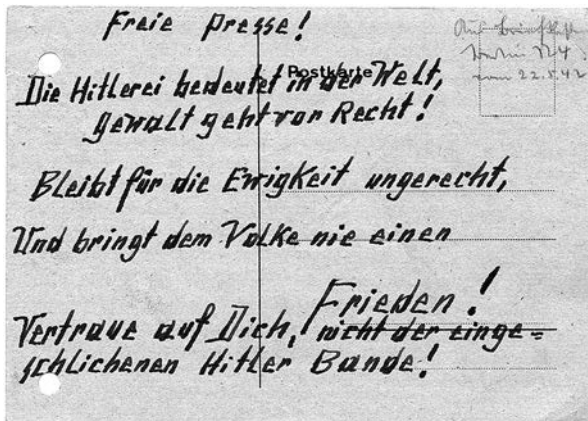 Freie Presse!
vom 22.5.42
Postkarte
Die Hitlerei bedeutet in der Welt,
gewalt geht vor Recht!
Bleibt für die Ewigkeit ungerecht,
Und bringt dem Volke nie einen
Frieden!
Vertraue auf Dich, nicht der einge=
schlichenen Hitler Bande!